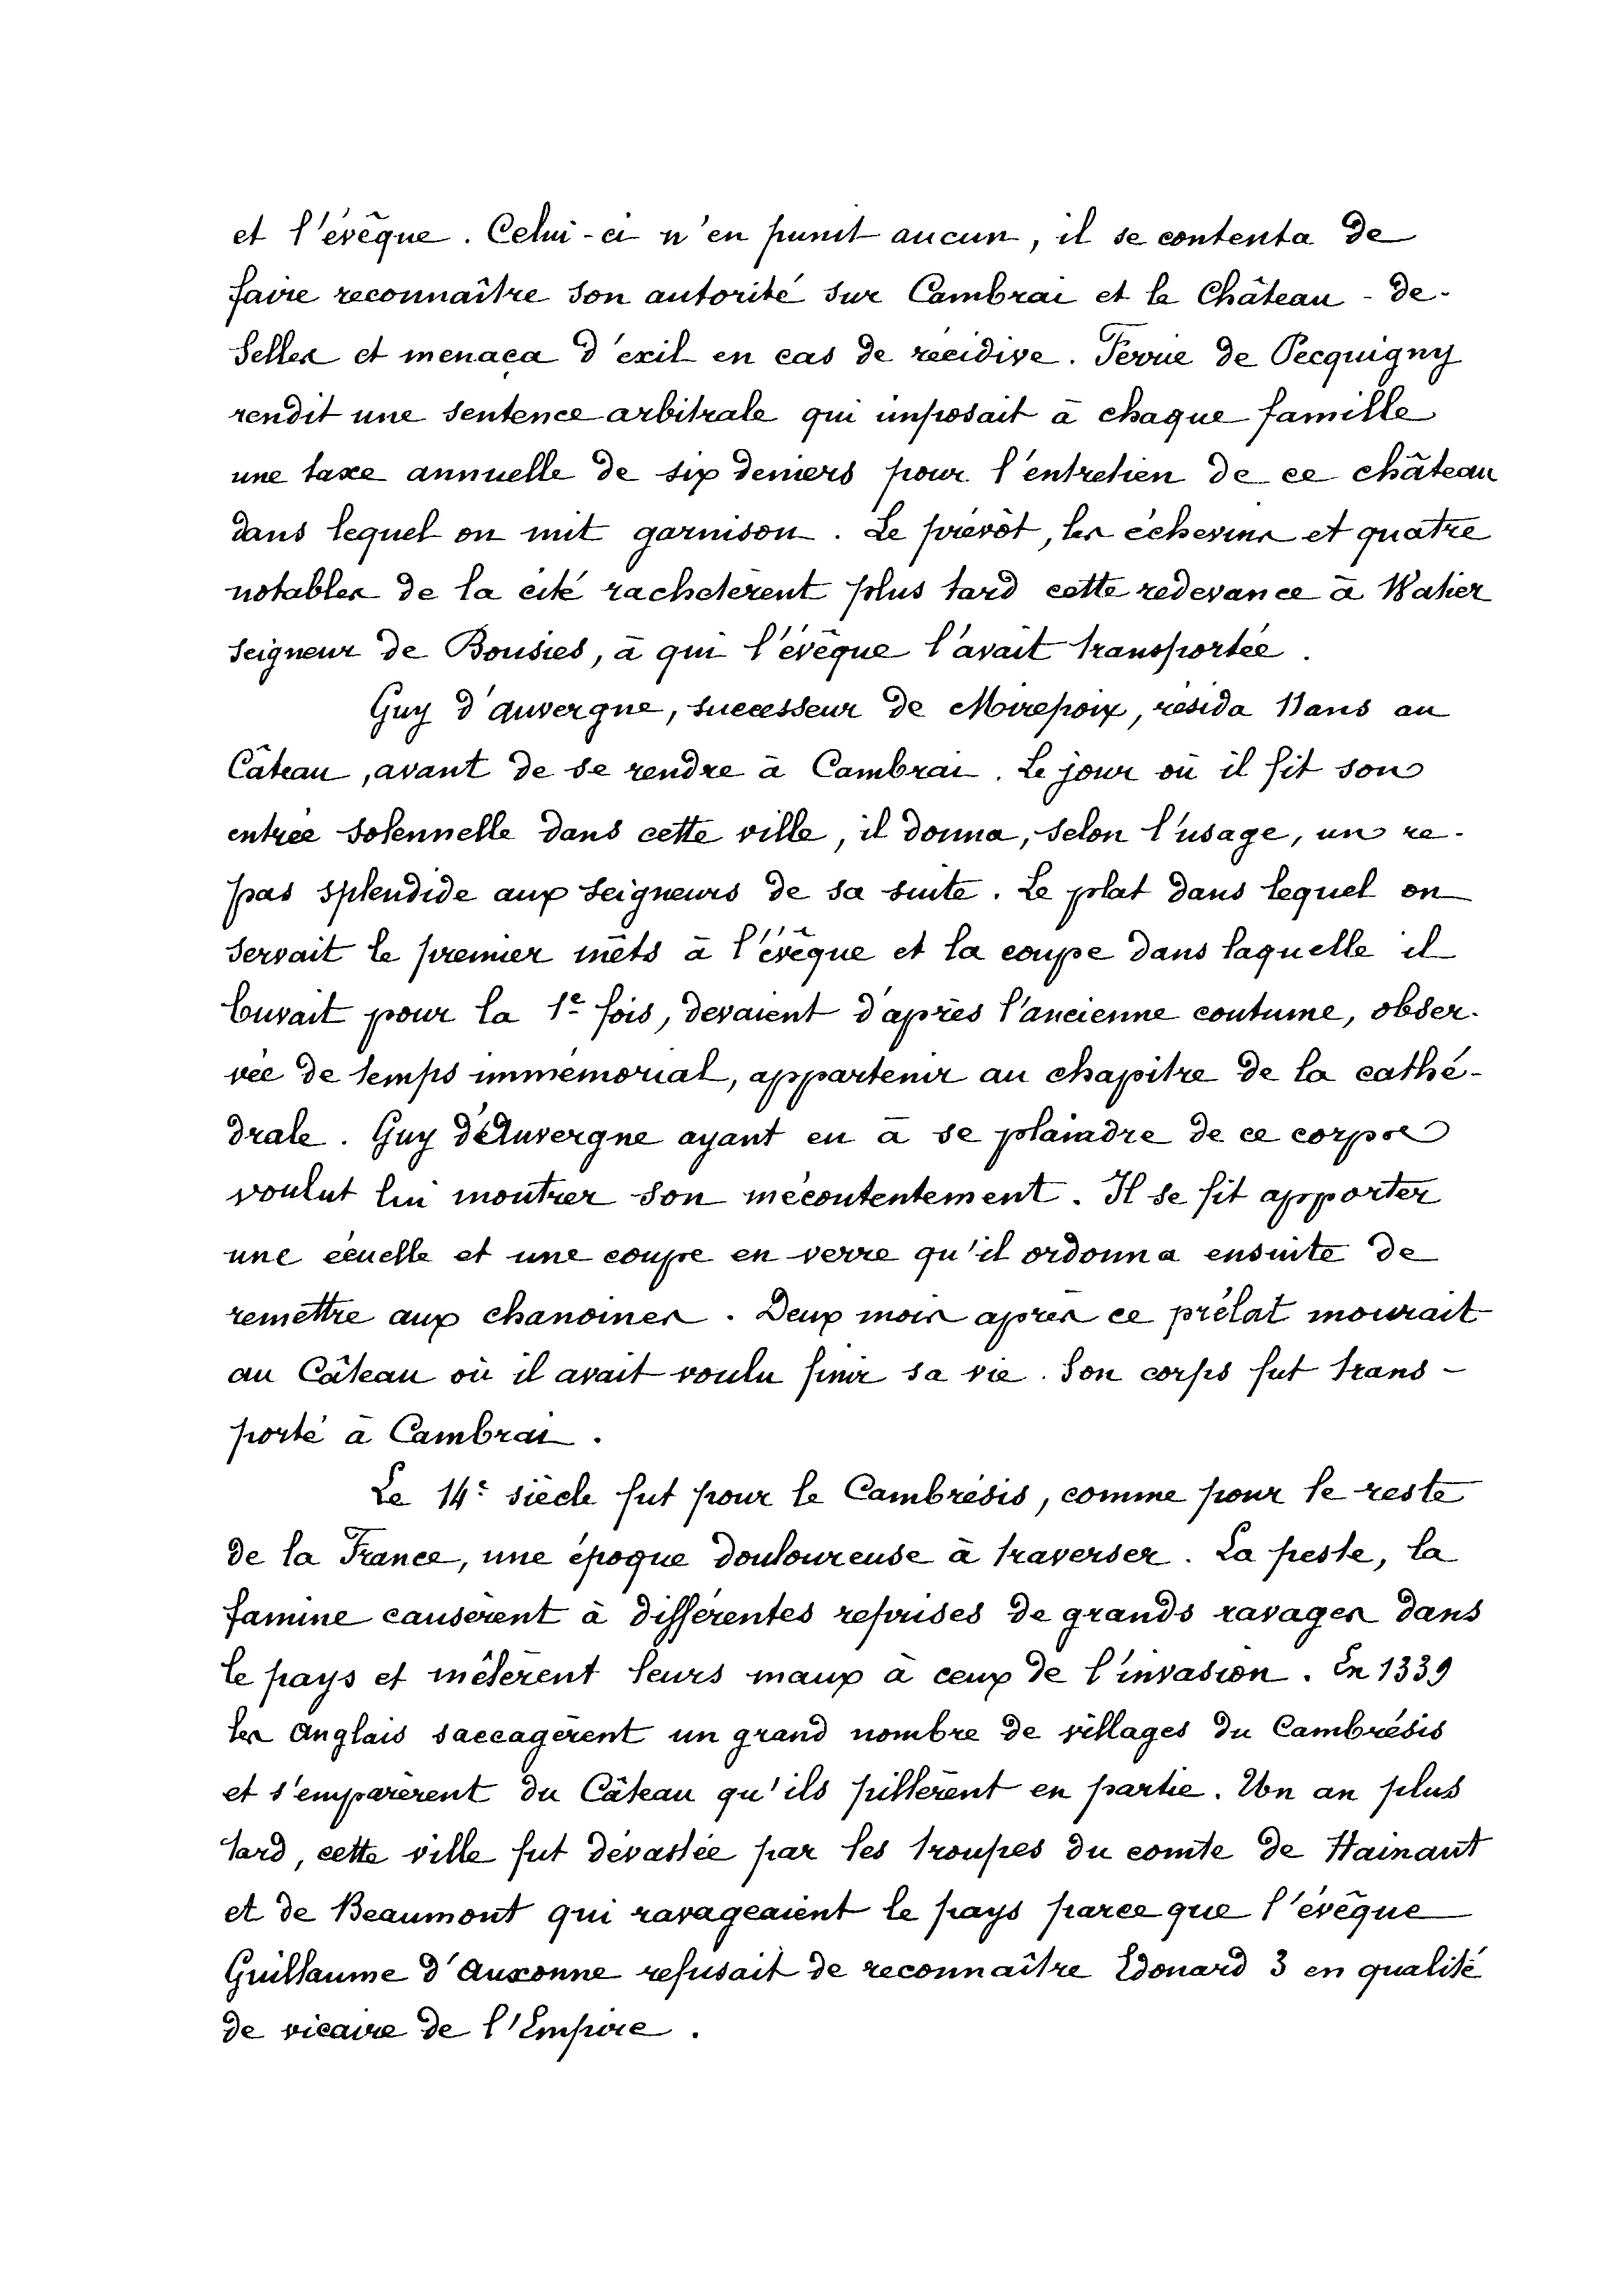 et l'évêque. Celui-ci n'en punit aucun, il se contenta de
faire reconnaître son autorité sur Cambrai et le Château-de-
Selles et menaça d'exil en cas de récidive. Ferrie de Pecquigny
rendit une sentence arbitrale qui imposait à chaque famille
une taxe annuelle de six deniers pour l'entretien de ce château
dans lequel on mit garnison. Le prévôt, les échevins et quatre
notables de la cité rachetèrent plus tard cette redevance à Watier
seigneur de Bousies, à qui l'évêque l'avait transportée.
Guy d'Auvergne, successeur de Mirepoix, résida 11 ans au
Câteau, avant de se rendre à Cambrai. Le jour où il fit son
entrée solennelle dans cette ville, il donna, selon l'usage, un re-
pas splendide aux seigneurs de sa suite. Le plat dans lequel on
servait le premier mêts à l'évêque et la coupe dans laquelle il
buvait pour la 1e fois, devaient d'après l'ancienne coutume, obser-
vée de temps immémorial, appartenir au chapitre de la cathé-
drale. Guy d'Auvergne ayant eu à se plaindre de ce corps
voulut lui montrer son mécontentement. Il se fit apporter
une écuelle et une coupe en verre qu'il ordonna ensuite de
remettre aux chanoines. Deux mois après ce prélat mourait
au Câteau où il avait voulu finir sa vie. Son corps fut trans-
porté à Cambrai.
Le 14e siècle fut pour le Cambrésis, comme pour le reste
de la France, une époque douloureuse à traverser. La peste, la
famine causèrent à différentes reprises de grands ravages dans
le pays et mêlèrent leurs maux à ceux de l'invasion. En 1339
les Anglais saccagèrent un grand nombre de villages du Cambrésis
et s'emparèrent du Câteau qu'ils pillèrent en partie. Un an plus
tard, cette ville fut dévastée par les troupes du comte de Hainaut
et de Beaumont qui ravageaient le pays parce que l'évêque
Guillaume d'Auxonne refusait de reconnaître Edouard 3 en qualité
de vicaire de l'Empire.